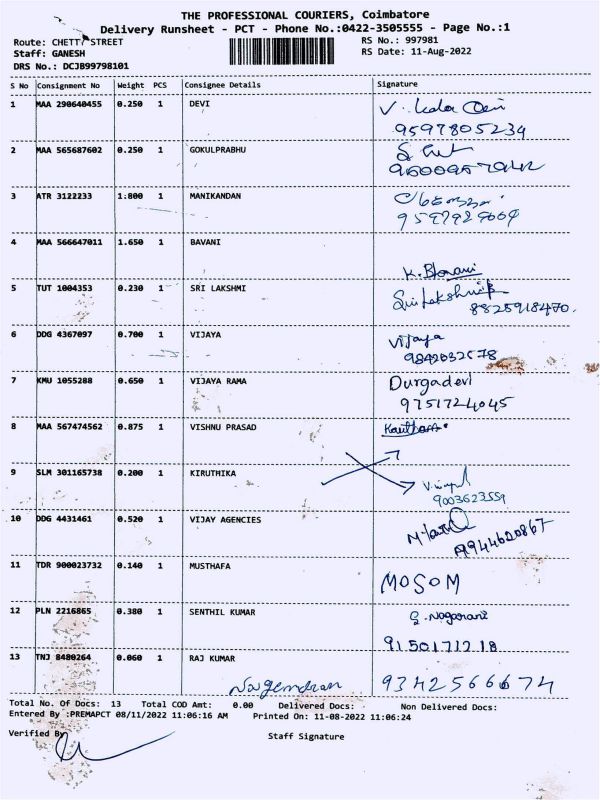 THE PROFESSIONAL COURIERS, Coimbatore
Delivery Runsheet - PCT - Phone No.:0422-3505555 - Page No.:1
Route: CHETTY STREET RS No.: 997981
Staff: GANESH RS Date: 11-Aug-2022
DRS No.: DCJB99798101
S No Consignment No Weight PCS Consignee Details Signature
1 MAA 290640455 0.250 1 DEVI V. Kala Devi
9597805234
2 MAA 565687602 0.250 1 GOKULPRABHU
3 ATR 3122233 1.800 1 MANIKANDAN
4 MAA 566647011 1.650 1 BAVANI
K. Bhavani
5 TUT 1004353 0.230 1 SRI LAKSHMI Sri Lakshmi
8825918470.
6 DDG 4367097 0.700 1 VIJAYA Vijaya
9842032578
7 KMU 1055288 0.650 1 VIJAYA RAMA Durgadevi
9751724045
8 MAA 567474562 0.875 1 VISHNU PRASAD
9 SLM 301165738 0.200 1 KIRUTHIKA
9003623559
10 DDG 4431461 0.520 1 VIJAY AGENCIES
9944620867
11 TDR 900023732 0.140 1 MUSTHAFA
MOSOM
12 PLN 2216865 0.380 1 SENTHIL KUMAR S. Nagarani
9150171218
13 TNJ 8480264 0.060 1 RAJ KUMAR
Nagendran 9342566674
Total No. Of Docs: 13 Total COD Amt: 0.00 Delivered Docs: Non Delivered Docs:
Entered By :PREMAPCT 08/11/2022 11:06:16 AM Printed On: 11-08-2022 11:06:24
Verified By
Staff Signature